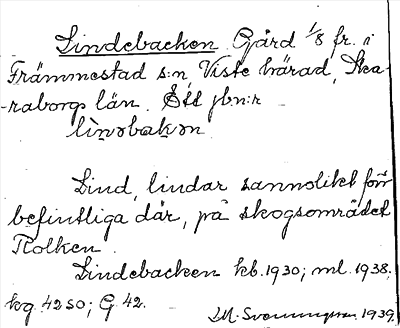 Lindebacken Gård 1/8 fr. i
Främmestad s:n, Viste härad, Ska-
-raborgs län. Ett jbn:r
li`nəbakən
Lind, lindar sannolikt förr
befintliga där, på skogsområdet
Kolken.
Lindebacken kb. 1930; ml. 1938;
kg. 42 SO; G 42.
1939